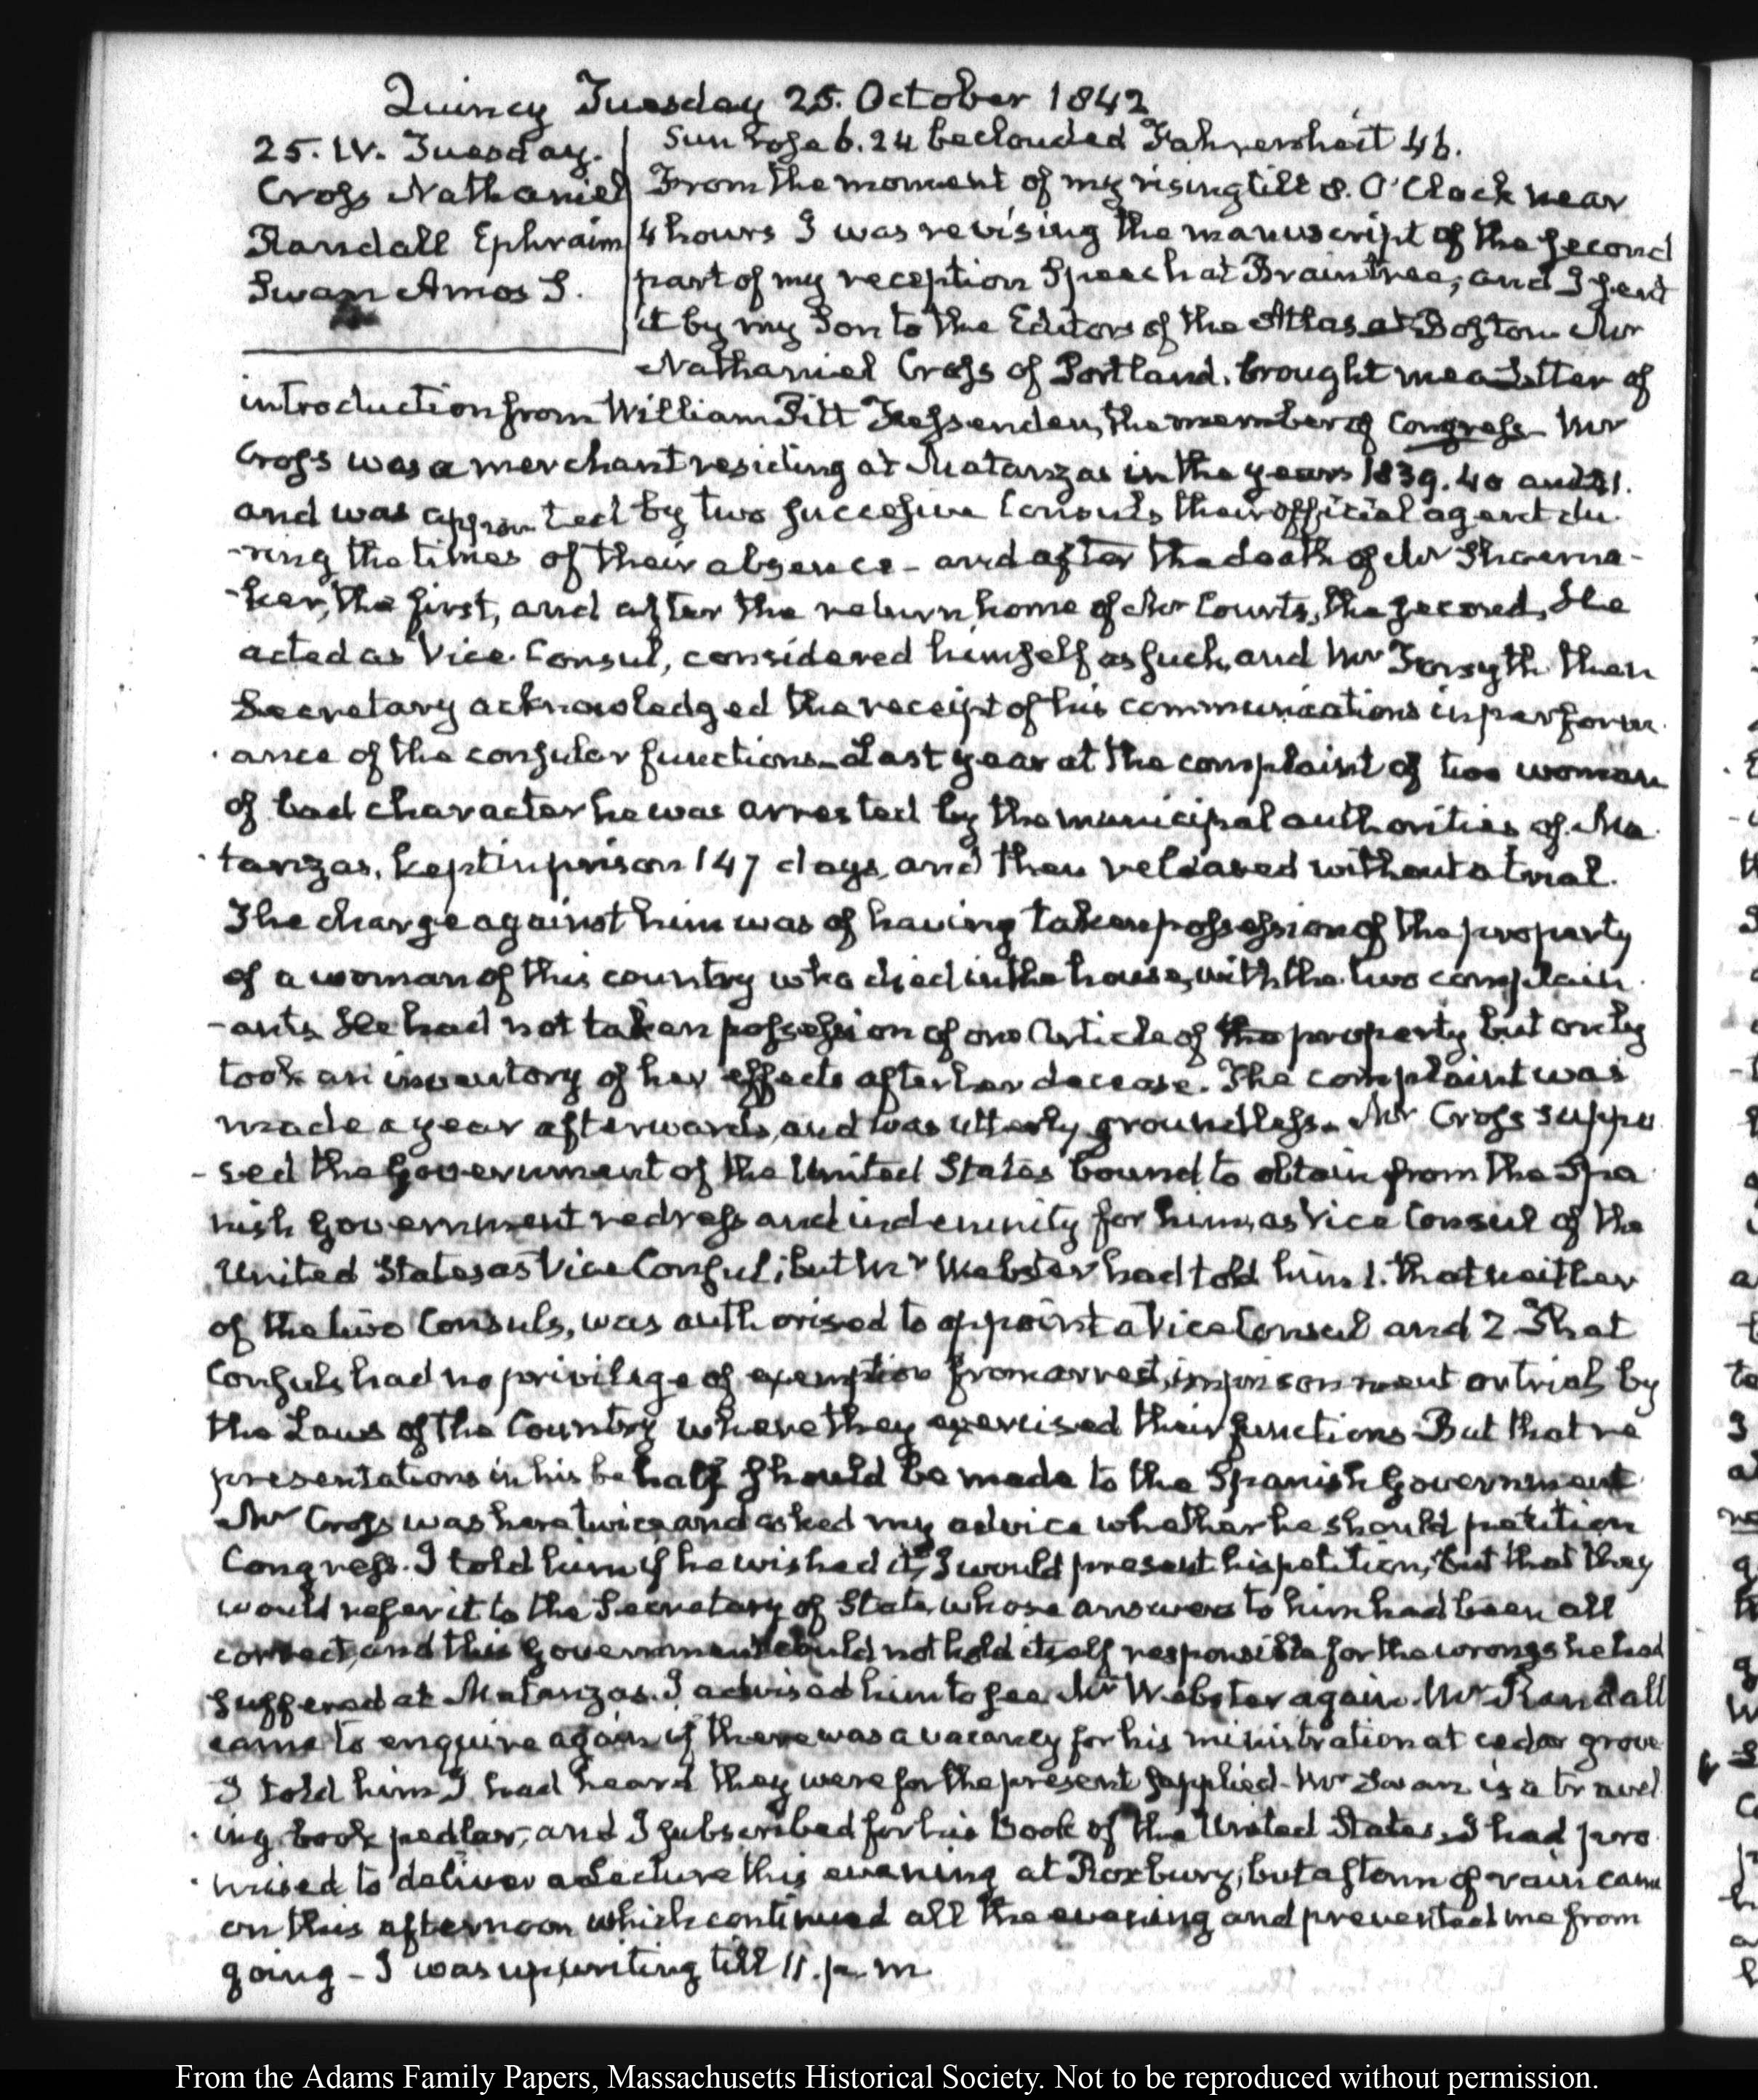 Quincy Tuesday 25. October 1842
25. IV. Tuesday.
Cross Nathaniel
Randall Ephraim
Swan Amos S.
Sun rose 6.24 beclouded Fahrenheit 46.
From the moment of my rising till 8. O'Clock near
4 hours I was revising the manuscript of the second
part of my reception Speech at Braintree, and I sent
it by my Son to the Editors of the Atlas at Boston Mr
Nathaniel Cross of Portland, brought me a Letter of
introduction from William Pitt Fessenden, the member of Congress Mr
Cross was a merchant residing at Matanzas in the years 1839. 40 and 41.
and was appointed by two successive Consuls their official agent du-
-ring the times of their absence - and after the death of Mr Shoema-
-ker, the first, and after the return home of Mr Courts, the second, he
acted as Vice-Consul, considered himself as such, and Mr Forsyth then
Secretary acknowledged the receipt of his communications in perform-
-ance of the consular functions - Last year at the complaint of two women
of bad character he was arrested by the municipal authorities of Ma-
-tanzas, kept in prison 147 days, and then released without a trial.
The charge against him was of having taken possession of the property
of a woman of this country who died in the house, with the two complain-
-ants. He had not taken possession of one Article of the property but only
took an inventory of her effects after her decease. The complaint was
made a year afterwards, and was utterly groundless. Mr Cross suppo-
-sed the Government of the United States bound to obtain from the Spa-
nish Government redress and indemnity for him, as Vice Consul of the
United States as Vice Consul; but Mr Webster had told him 1. that neither
of the two Consuls, was authorised to appoint a Vice Consul and 2 That
Consuls had no privilege of exemption from arrest, imprisonment or trial by
the Laws of the Country where they exercised their functions But that re
presentations in his behalf should be made to the Spanish Government
Mr Cross was here twice and asked my advice whether he should petition
Congress. I told him if he wished it, I would present his petition, but that they
would refer it to the Secretary of State, whose answers to him had been all
correct, and this Government could not hold itself responsible for the wrongs he had
suffered at Matanzas. I advised him to see Mr Webster again. Mr Randall
came to enquire again if there was a vacancy for his ministration at cedar grove
I told him I had heard they were for the present supplied - Mr Swan is a travel
-ing book pedlar, and I subscribed for his Book of the United States. I had pro-
-mised to deliver a Lecture this evening at Roxbury, but a storm of rain came
on this afternoon which continued all the evening and prevented me from
going - I was up writing till 11. p.m
From the Adams Family Papers, Massachusetts Historical Society. Not to be reproduced without permission.